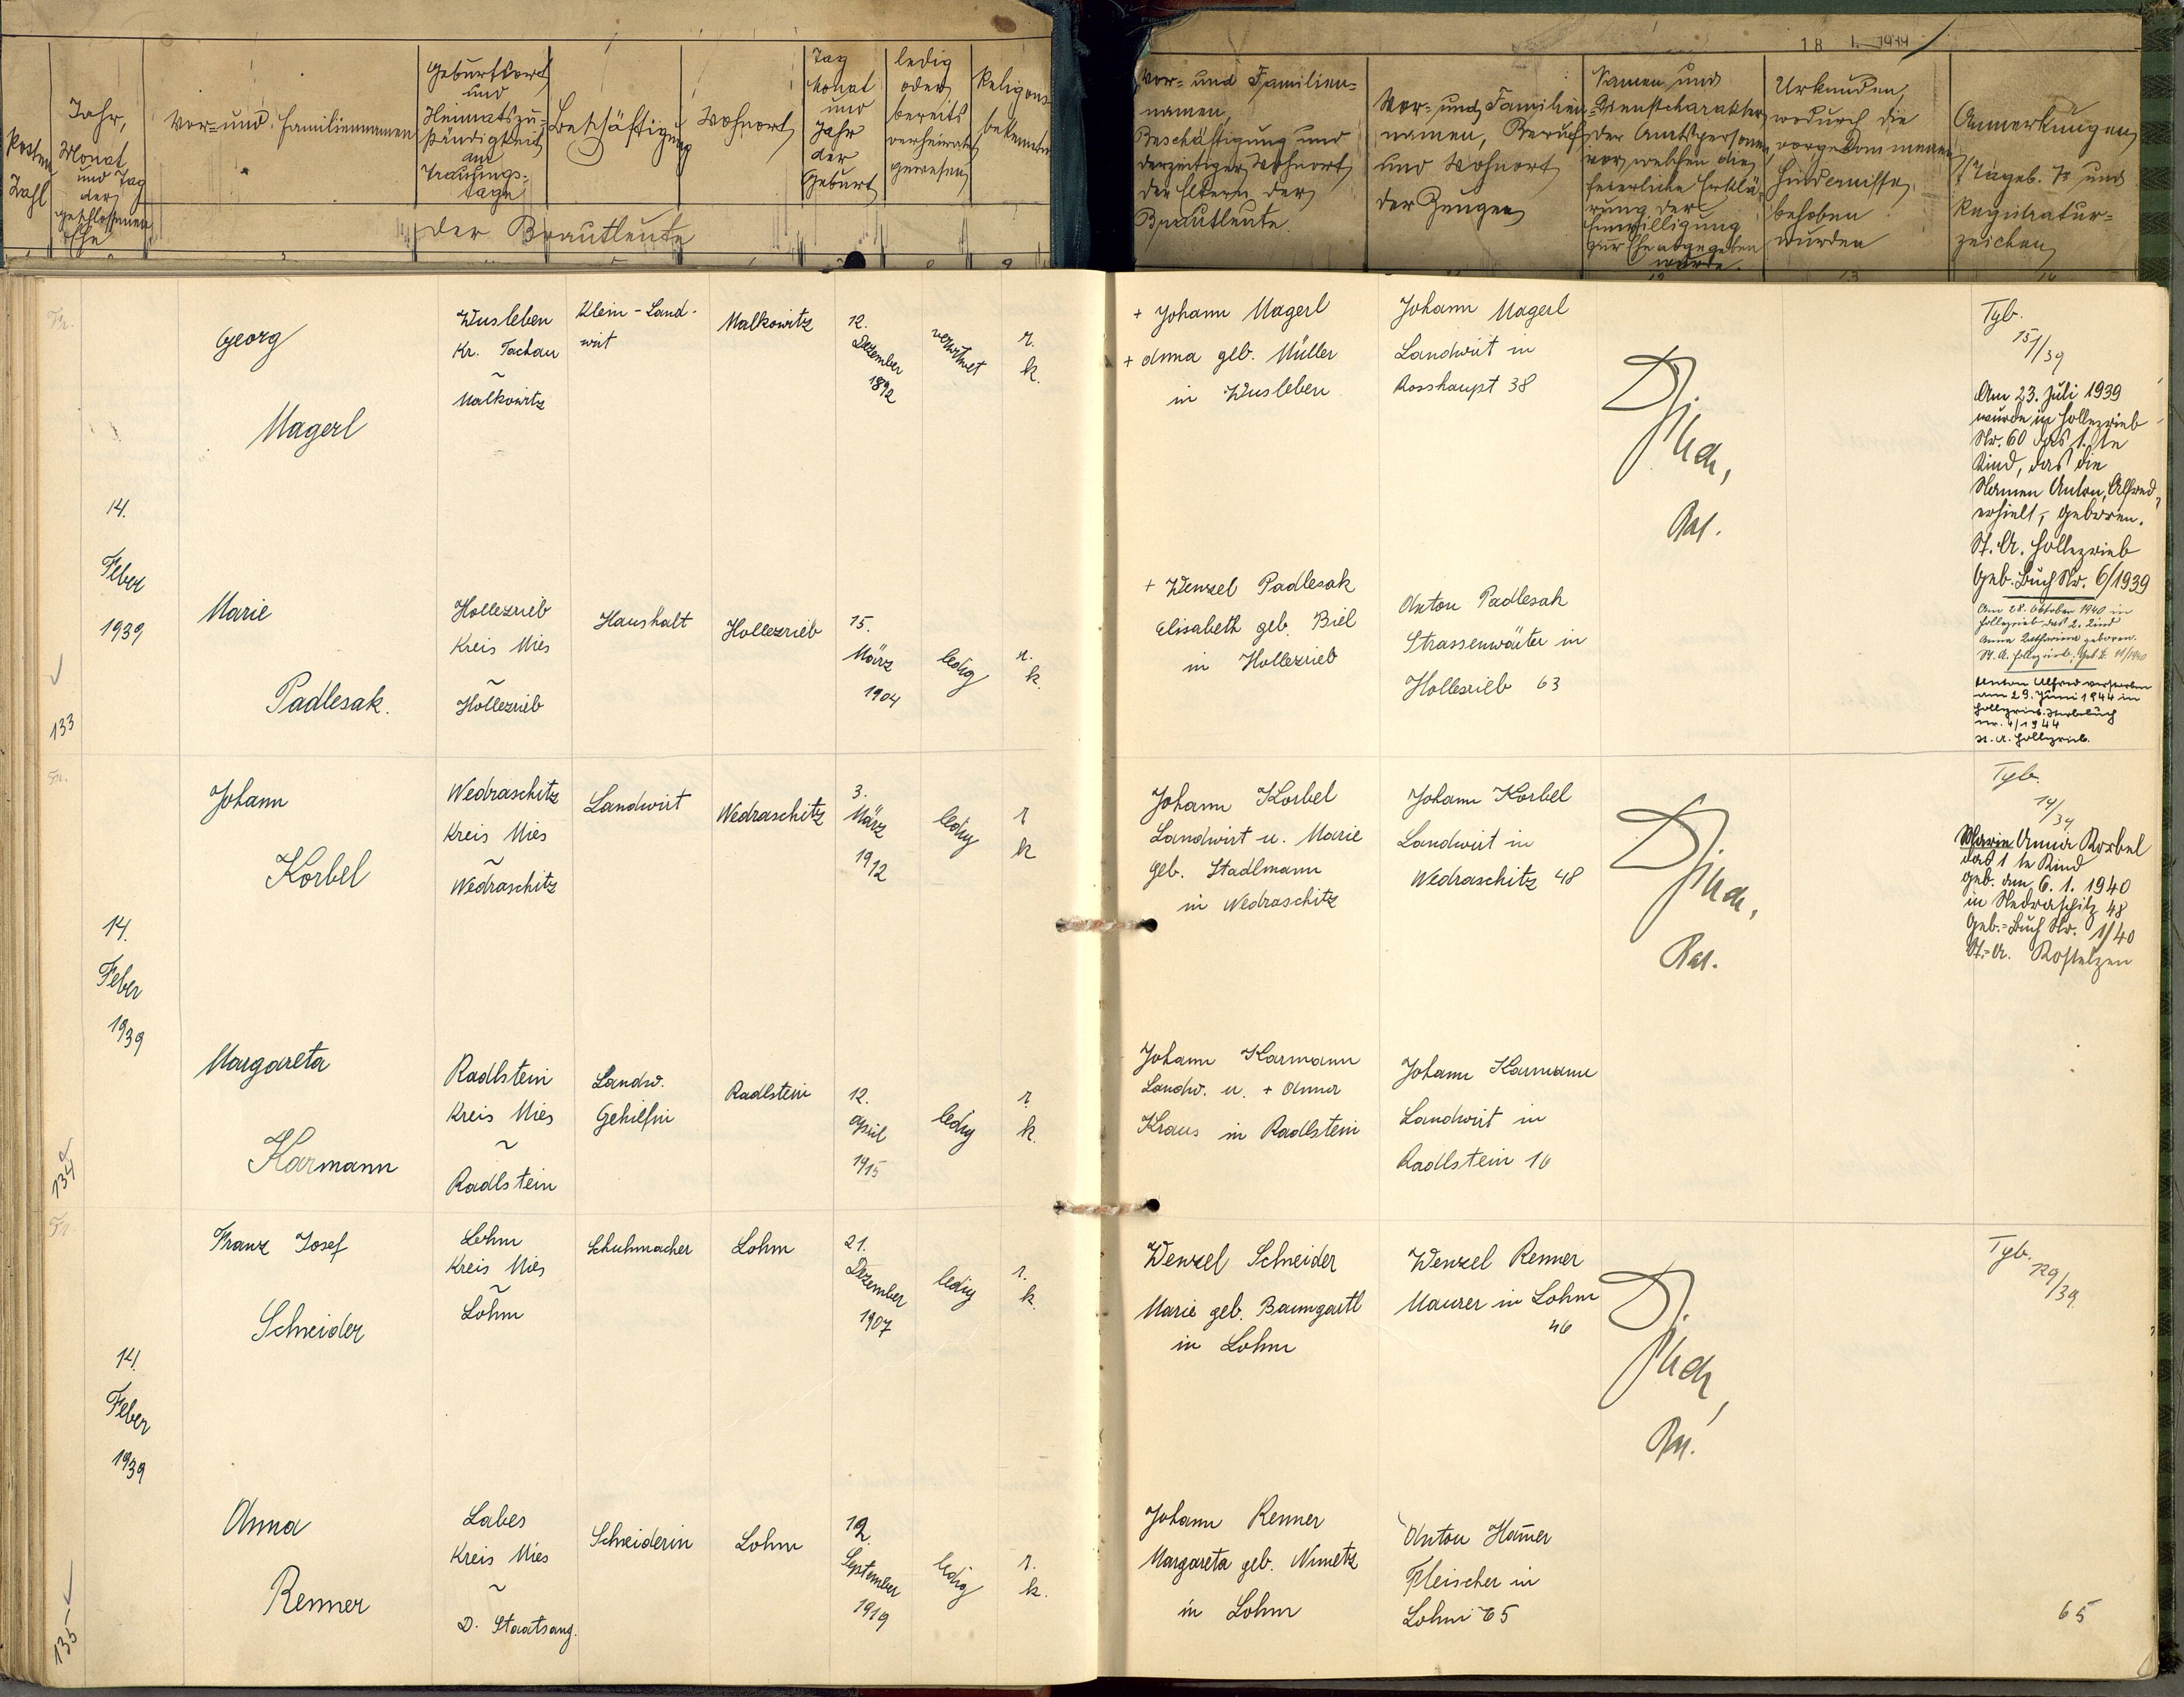 Posten
Zahl
Jahr,
Monat
und Tag
der
geschlossenen
Ehe
Vor- und Familiennamen
Geburtsort
und
Heimatszu-
ständigkeit
am
Trauungs-
tage
Beschäftigung
Wohnort
Tag
Monat
und
Jahr
der
Geburt
ledig
oder
bereits
verheiratet
gewesen
Religions-
bekenntn
der Brautleute
18 1. 1939
Vor- und Familien-
namen,
Beschäftigung und
derzeitiger Wohnort
der Eltern der
Brautleute.
Vor- und Familien
namen, Beruf
und Wohnort
der Zeugen
Namen und
Dienstcharakter
der Amtspersonen
vor welchen die
feierliche Erklä-
rung der
Einwilligung
zur Ehe abgegeben
wurde.
Urkunden,
wodurch die
vorgekommenen
Hindernisse,
behoben
wurden
Anmerkungen,
Tageb. Z. und
Registratur-
zeichen
133
14.
Feber
1939
Georg
Magerl
Wusleben
Kr. Tachau
~
Malkowitz
Klein-Land-
wirt
Malkowitz
12.
Dezember
1892
verwitwet
r.
k.
+ Johann Magerl
+ Anna geb. Müller
in Wusleben
Johann Magerl
Landwirt in
Rosshaupt 38
Rat.
Tgb.
151/39
Am 23. Juli 1939
wurde in Hollezrieb
Nr. 60 das 1. te
Kind, das die
Namen Anton, Alfred,
erhielt, geboren.
St. A. Hollezrieb
Geb. Buch Nr. 6/1939
Am 28. Oktober 1940 in
Hollezrieb das 2. Kind
Anna Katharina geboren.
St. A. Hollezrieb, Geb. B. 11/1940
Anton Alfred verstorben
am 29. Juni 1944 in
Hollezrieb. Sterbebuch
Nr. 4/1944
St. A. Hollezrieb.
Marie
Padlesak.
Hollezrieb
Kreis Mies
~
Hollezrieb
Haushalt
Hollezrieb
15.
März
1904
ledig
r.
k.
+ Wenzel Padlesak
Elisabeth geb. Biel
in Hollezrieb
Anton Padlesak
Strassenwärter in
Hollezrieb 63
134
14.
Feber
1939
Johann
Korbel
Wedraschitz
Kreis Mies
~
Wedraschitz
Landwirt
Wedraschitz
3.
März
1912
ledig
r
k
Johann Korbel
Landwirt u. Marie
geb. Stadlmann
in Wedraschitz
Johann Korbel
Landwirt in
Wedraschitz 48
Rat.
Tgb.
14/39
Marie Anna Korbel
das 1 te Kind
geb. am 6. 1. 1940
in Wedraschitz 48
Geb.-Buch Nr. 1/40
St.-A. Kostelzen
Margareta
Karmann
Radlstein
Kreis Mies
~
Radlstein
Landw.
Gehilfin
Radlstein
12.
April
1915
ledig
r.
k.
Johann Karmann
Landw. u. + Anna
Kraus in Radlstein
Johann Karmann
Landwirt in
Radlstein 16
135
14.
Feber
1939
Franz Josef
Schneider
Lohm
Kreis Mies
~
Lohm
Schuhmacher
Lohm
21.
Dezember
1907
ledig
r.
k.
Wenzel Schneider
Marie geb. Baumgartl
in Lohm
Wenzel Renner
Maurer in Lohm
46
Rat.
Tgb.
129/39.
Anna
Renner
Labes
Kreis Mies
~
D. Staatsang.
Schneiderin
Lohm
12.
September
1919
ledig
r.
k.
Johann Renner
Margareta geb. Nimetz
in Lohm
Anton Ham̄er
Fleischer in
Lohm 65
65